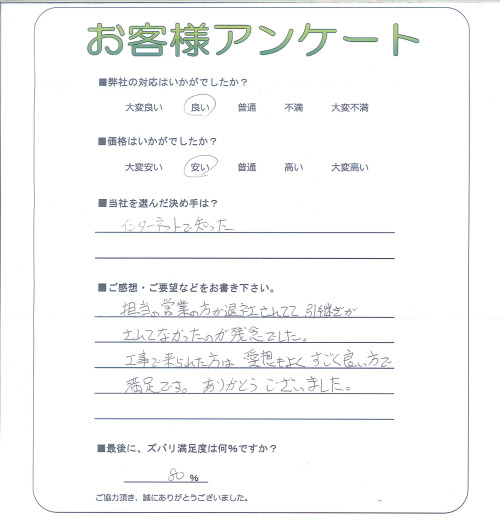 お客様アンケート
■弊社の対応はいかがでしたか？
大変良い 良い 普通 不満 大変不満
■価格はいかがでしたか？
大変安い 安い 普通 高い 大変高い
■当社を選んだ決め手は？
インターネットで知った
■ご感想・ご要望などをお書き下さい。
担当の営業の方が退社されてて 引継ぎが
されてなかったのが残念でした。
工事で来られた方は 愛想もよく すごく良い方で
満足です。 ありがとう ございました。
■最後に、ズバリ満足度は何%ですか？
80 %
ご協力頂き、誠にありがとうございました。